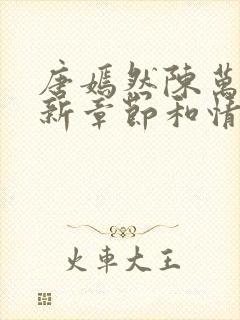 唐嫣然陳萬
新章節和情
火車大王